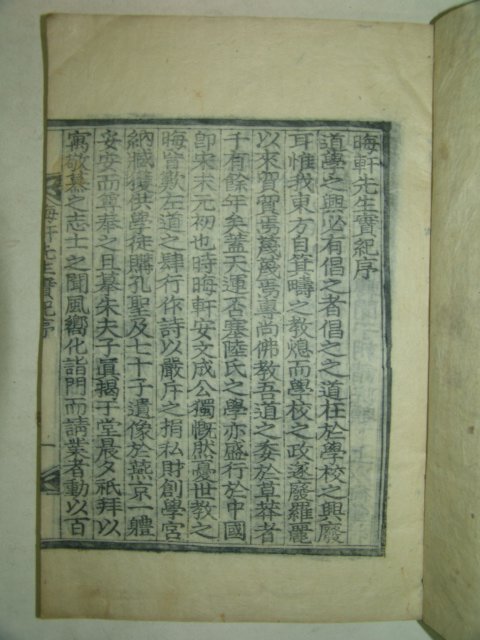 晦軒先生實紀序
道學之興必有倡之者倡之之道在於學校之興廢
耳惟我東方自箕疇之教熄而學校之政遂廢羅麗
以來貿貿焉蔑蔑焉專尚佛教吾道之委於草莽者
千有餘年矣蓋天運否塞陸氏之學亦盛行於中國
卽宋末元初也時晦軒安文成公獨慨然憂世教之
晦盲歎左道之肆行作詩以嚴斥之捐私財創學宮
納臧獲供學徒購孔聖及七十子遺像於燕京一體
妥安而尊奉之且摹朱夫子眞揭于堂晨夕祇拜以
寓敬慕之志士之聞風嚮化詣門而請業者動以百
晦軒先生實紀序
一